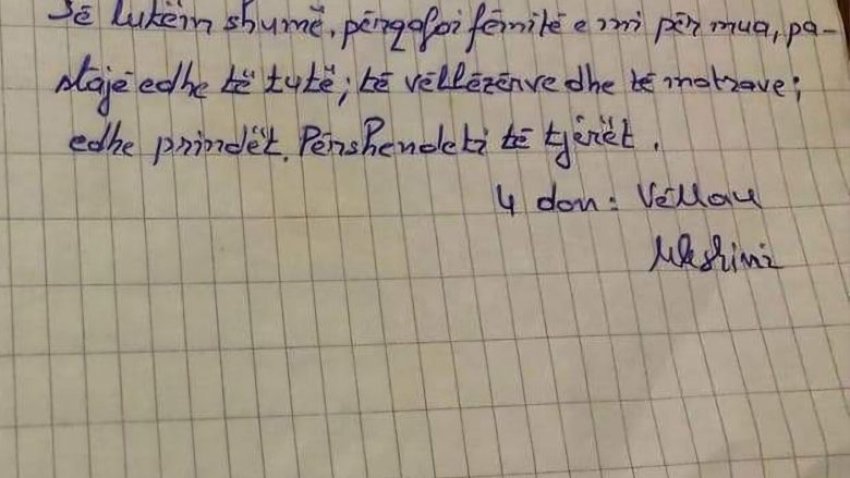 Të lutëm shumë, përqafoi fëmitë e mi për mua, pa-
stajë edhe të tutë; të vëllëzënve dhe të motrave;
edhe prindët. Përshendeti të tjërët.
U don: Vëllau